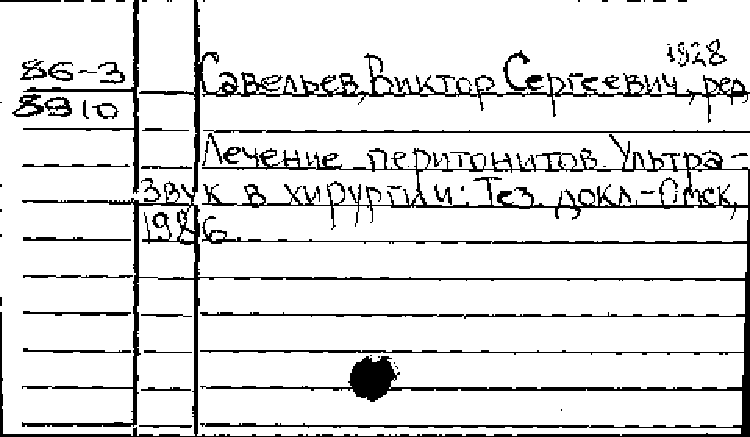 1928
86-3 Савельев, Виктор Сергеевич, ред
8910
Лечение перитонитов. Ультра-
звук в хирургии: Тез. докл.-Омск,
1986.